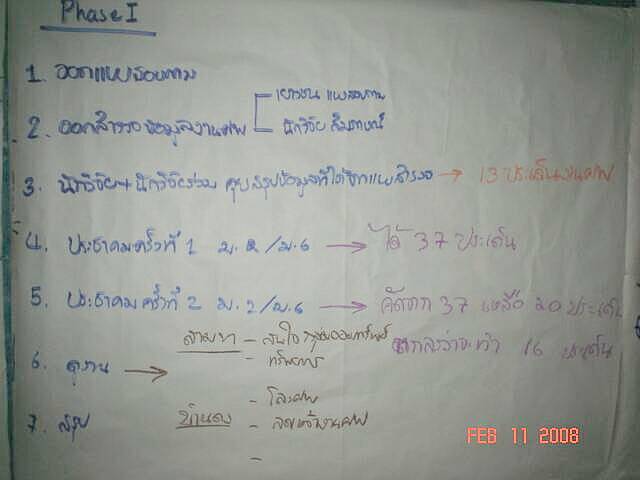 Phase I
1. ออกแบบสอบถาม
2. ออกสำรวจข้อมูลงานศพ
เยาวชน แบบสอบถาม
นักวิจัย สัมภาษณ์
3. นักวิจัย + นักวิจัยร่วม คุยสรุปข้อมูลที่ได้จากแบบสำรวจ → 13 ประเด็นงานศพ
4. ประชาคมครั้งที่ 1 ม.2/ม.6 → ได้ 37 ประเด็น
5. ประชาคมครั้งที่ 2 ม.2/ม.6 → คัดจาก 37 เหลือ 20 ประเด็น
ตกลงว่าจะทำ 16 ประเด็น
6. ดูงาน → - สนใจ
- โลงศพ
7. สรุป - ลดเหล้างานศพ
-
FEB 11 2008